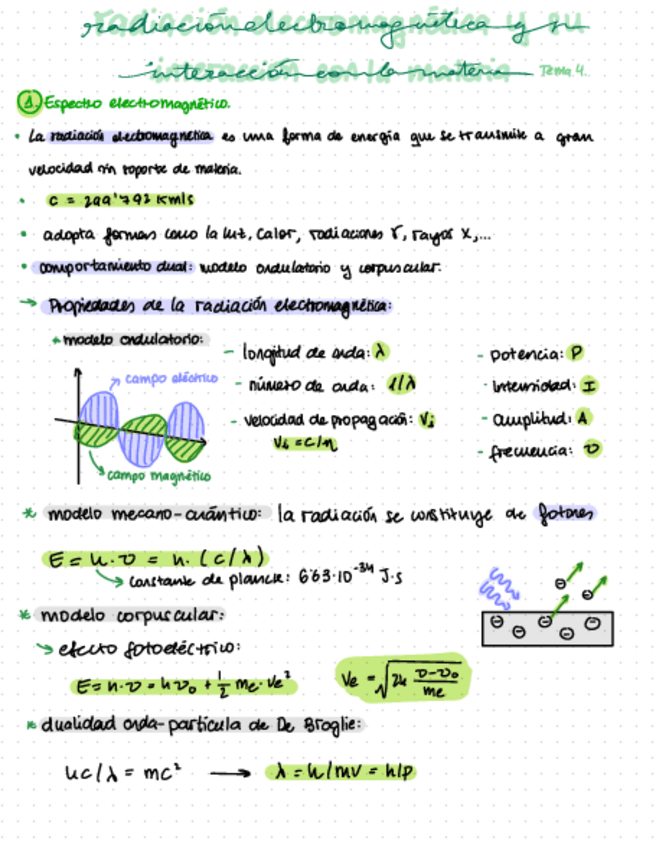 radiación electromagnética y su
interacción con la materia Tema 4.
1. Espectro electromagnético.
• La radiación electromagnética es una forma de energía que se transmite a gran
velocidad sin soporte de materia.
• c = 299'792 km/s
• adopta formas como la luz, calor, radiaciones γ, rayos X,...
• comportamiento dual: modelo ondulatorio y corpuscular.
→ Propiedades de la radiación electromagnética:
* modelo ondulatorio:
campo eléctrico
campo magnético
- longitud de onda: λ
- número de onda: 1/λ
- velocidad de propagación: Vi
Vi = c/η
- potencia: P
- Intensidad: I
- amplitud: A
- frecuencia: ν
* modelo mecano-cuántico: la radiación se constituye de fotones
E = h·ν = h·(c/λ)
→ constante de planck: 6'63·10⁻³⁴ J·s
* modelo corpuscular:
↳ efecto fotoeléctrico:
E = h·ν = hν₀ + 1/2 me·Ve²
Ve = √(2h (ν-ν₀)/me)
* dualidad onda-partícula de De Broglie:
hc/λ = mc² → λ = h/mv = h/p